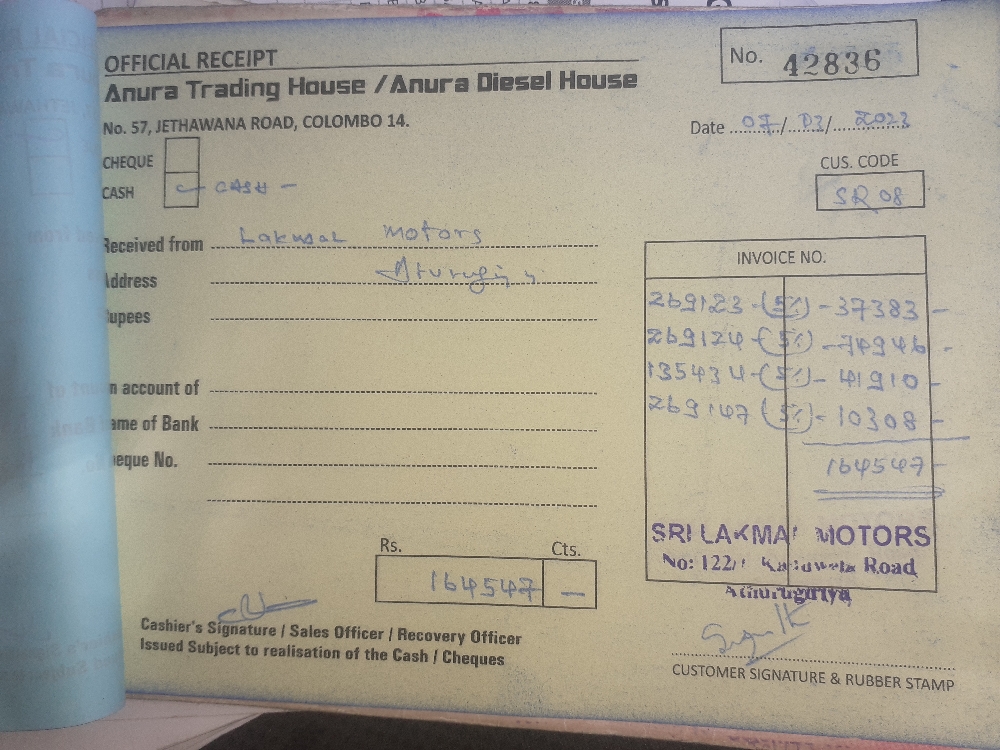 OFFICIAL RECEIPT
Anura Trading House / Anura Diesel House
No. 57, JETHAWANA ROAD, COLOMBO 14.
No. 42836
Date 07/03/2023
CHEQUE
CASH - CASH -
CUS. CODE
SR 08
Received from Lakmal Motors
Address
upees
n account of
ame of Bank
eque No.
INVOICE NO.
269123 - (5%) - 37383 -
269124 - (5%) - 74946 -
135434 - (5%) - 41910 -
269147 (5%) - 10308 -
164547 -
Rs. Cts.
164547 -
SRI LAKMAL MOTORS
No: 122/ Kaduwela Road
Athurugiriya,
Cashier's Signature / Sales Officer / Recovery Officer
Issued Subject to realisation of the Cash / Cheques
CUSTOMER SIGNATURE & RUBBER STAMP